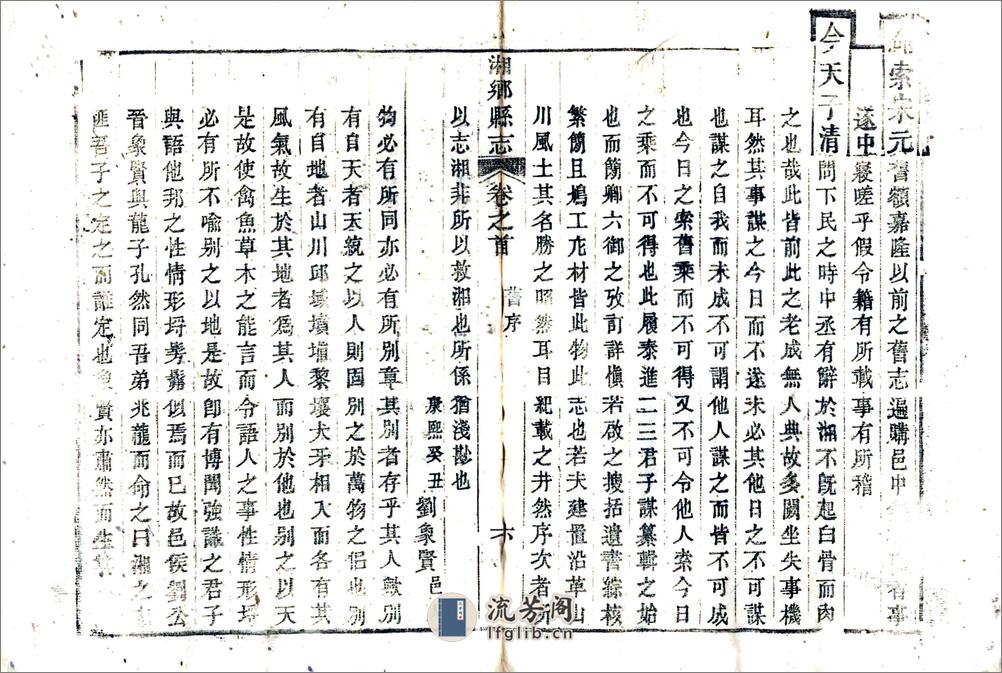 索宋元舊額嘉隆以前之舊志遍購邑中
遂中寢嗟乎假令籍有所載事有所稽
今天子清問下民之時中丞有辭於湖不旣起白骨而肉
之也哉此皆前此之老成無人典故多闕坐失事機
耳然其事謀之今日而不遂未必其他日之不可謀
也謀之自我而未成不可謂他人謀之而皆不可成
也今日之索舊乘而不可得又不可令他人索今日
之乘而不可得也此履泰進二三君子謀纂輯之始
也而簡卿六御之攷訂詳愼若啟之搜括遺書綜核
繁簡且鳩工庀材皆此物此志也若夫建置沿革山
川風土其名勝之昭然耳目紀載之井然序次者所
湘鄉縣志 卷之首 舊序 六
以志湘非所以救湘也所係猶淺尠也
康熙癸丑 劉象賢 邑
物必有所同亦必有所別章其別者存乎其人歟別
有自天者天統之以人則固別之於萬物之侶也別
有自地者山川邱墳壤犬牙相入而各有其
風氣故生於其地者爲其人而別於他也別之以天
是故使禽魚草木之能言而令語人之事性情形埒
必有所不喻別之以地是故卽有博聞強識之君子
與語他邦之性情形埒髣髴似焉而已故邑侯劉公
晉象賢與龍子孔然同吾弟兆龍而命之曰湘之
匪吾子之定之而誰定也象賢亦肅然而生
流芳阁
lfglib.cn